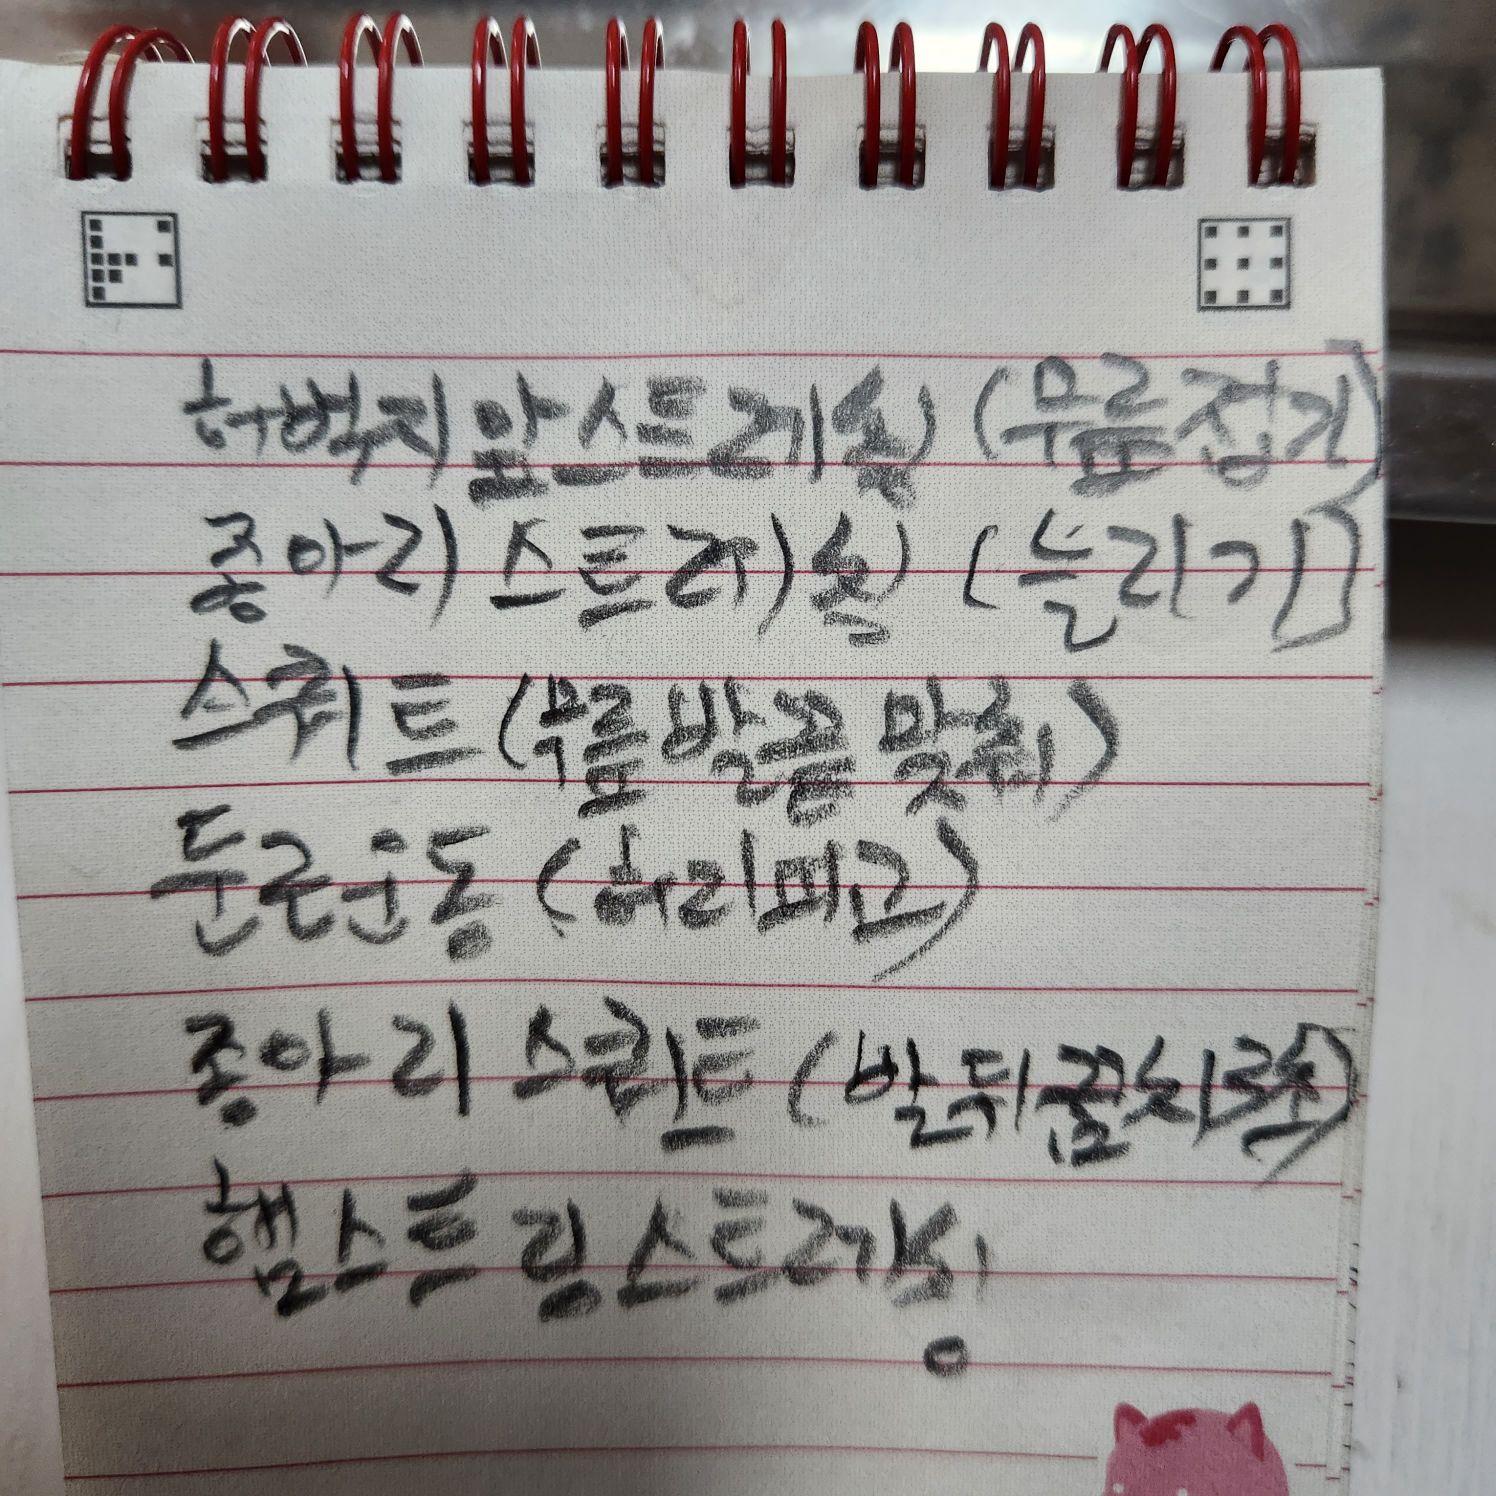 허벅지 앞 스트레칭 (무릎접기)
종아리 스트레칭 (늘리기)
스쿼트 (무릎 발끝 맞춰)
둔근운동 (허리피고)
종아리 스쿼트 (발뒤꿈치
햄스트링 스트레칭